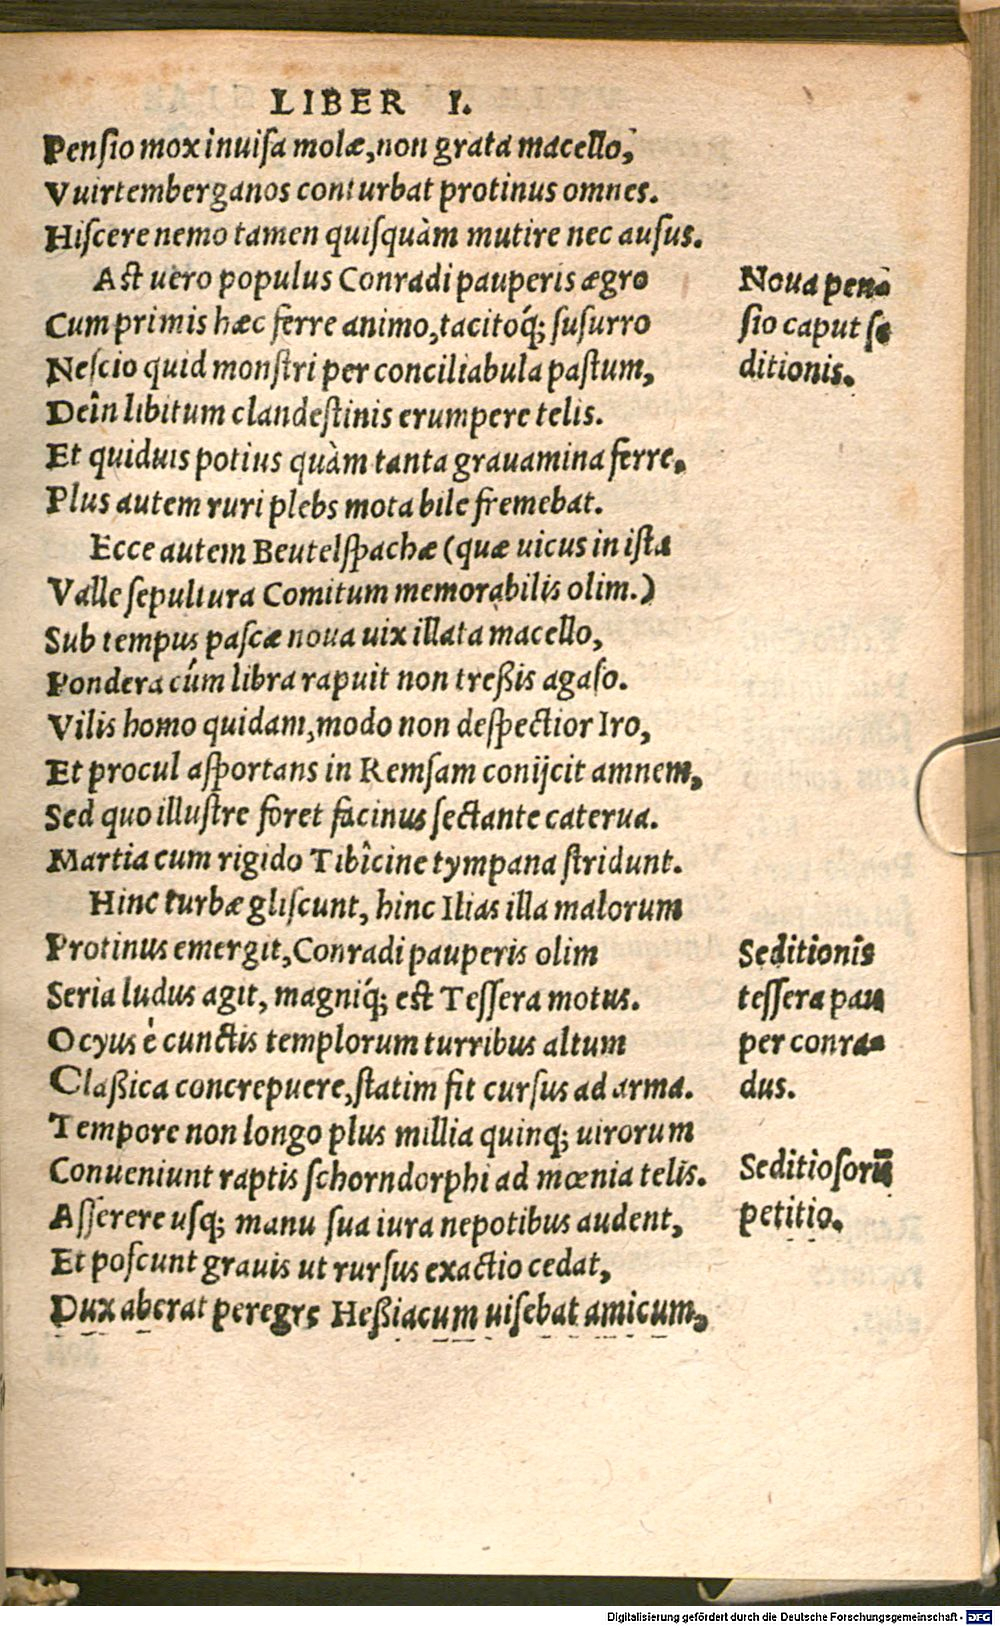 LIBER I.
Pensio mox inuisa molæ, non grata macello,
Vuirtemberganos conturbat protinus omnes.
Hiscere nemo tamen quisquàm mutire nec ausus.
Ast uero populus Conradi pauperis ægro
Cum primis hæc ferre animo, tacitoq́; susurro
Nescio quid monstri per conciliabula pastum,
Deîn libitum clandestinis erumpere telis.
Et quiduis potius quàm tanta grauamina ferre.
Plus autem ruri plebs mota bile fremebat.
Ecce autem Beutelspachæ (quæ uicus in ista
Valle sepultura Comitum memorabilis olim.)
Sub tempus pascæ noua uix illata macello,
Pondera cúm libra rapuit non treßis agaso.
Vilis homo quidam, modo non despectior Iro,
Et procul asportans in Remsam conijcit amnem,
Sed quo illustre foret facinus sectante caterua.
Martia cum rigido Tibîcine tympana stridunt.
Hinc turbæ gliscunt, hinc Ilias illa malorum
Protinus emergit, Conradi pauperis olim
Seria ludus agit, magniq́; est Tessera motus.
Ocyus è cunctis templorum turribus altum
Claßica concrepuere, statim fit cursus ad arma.
Tempore non longo plus millia quinq; uirorum
Conueniunt raptis schorndorphi ad mœnia telis.
Asserere usq; manu sua iura nepotibus audent,
Et poscunt grauis ut rursus exactio cedat,
Dux aberat peregre Heßiacum uisebat amicum,
Noua pen-
sio caput se
ditionis.
Seditionis
tessera pau
per conra-
dus.
Seditiosorũ
petitio.
Digitalisierung gefördert durch die Deutsche Forschungsgemeinschaft - DFG